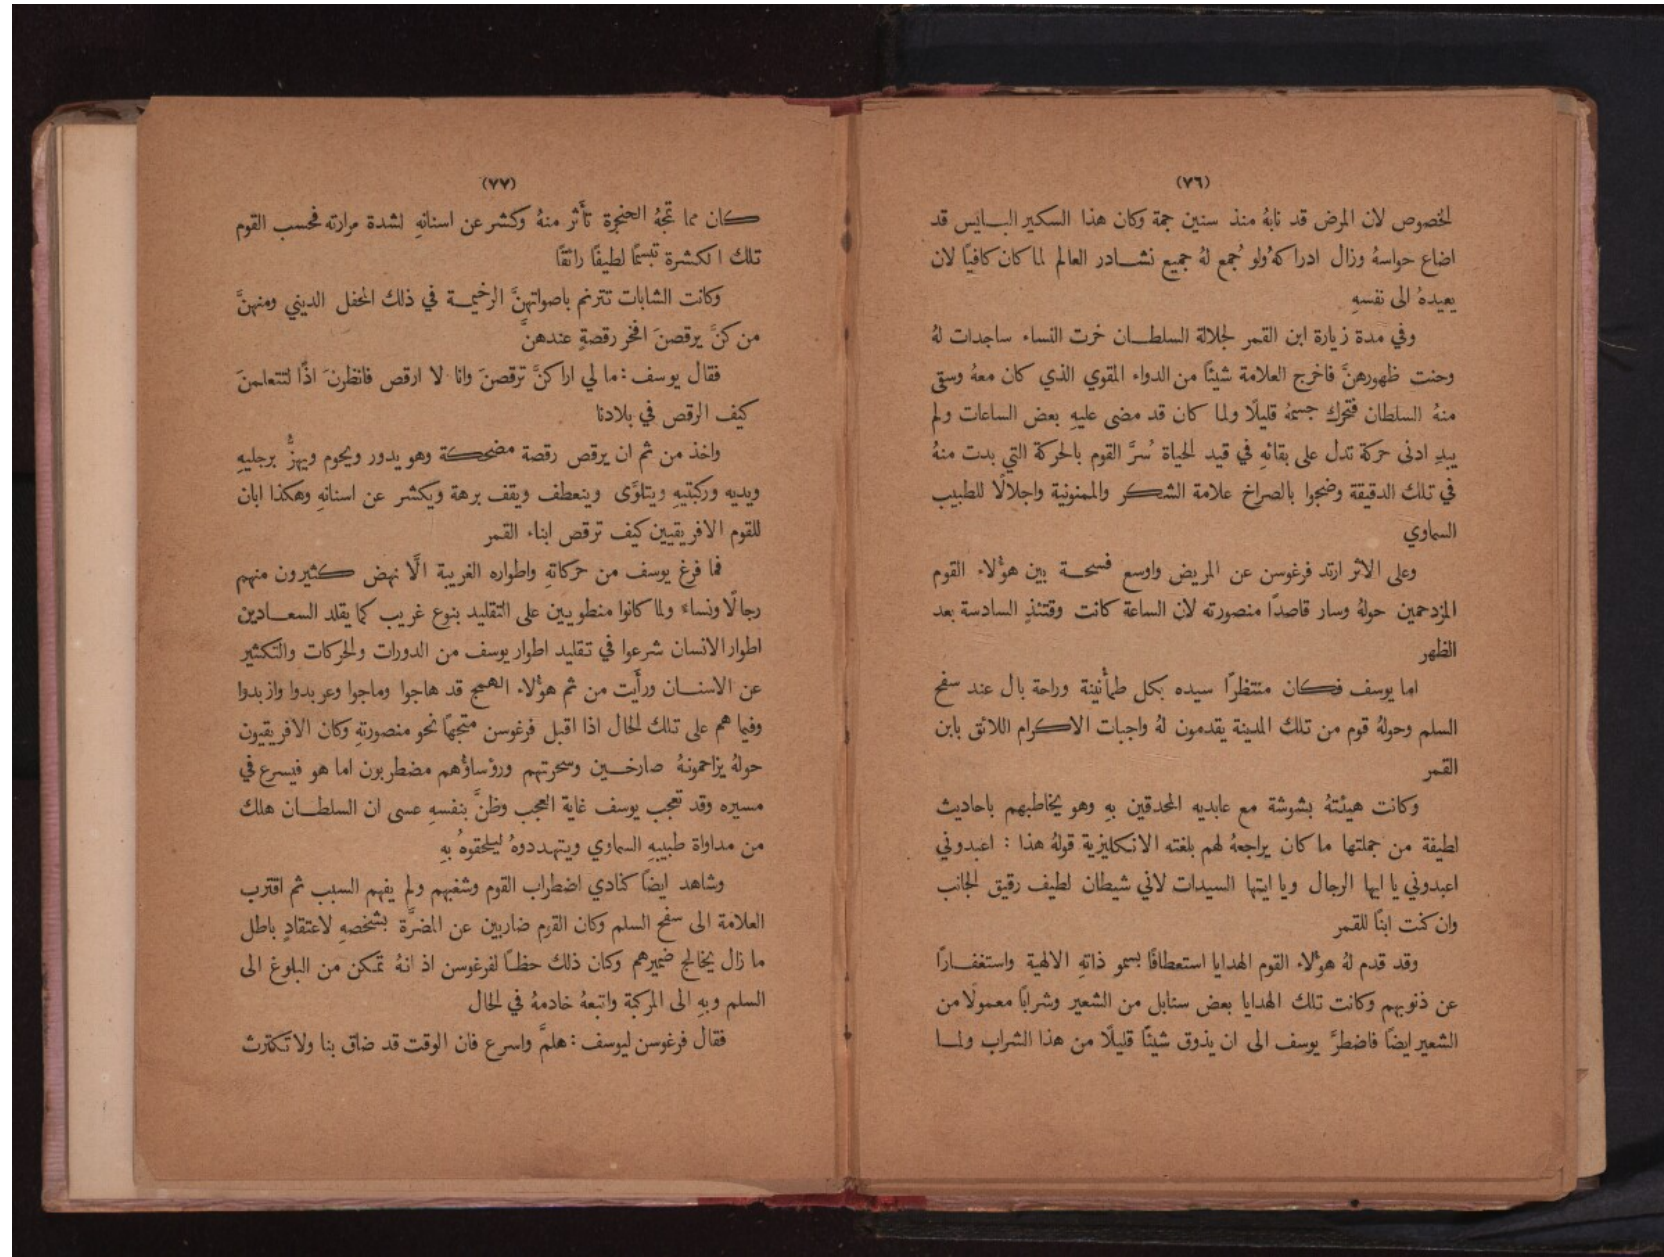 (٧٦)
الخصوص لان المرض قد نابهُ منذ سنين جمة وكان هذا السكير البـايس قد
اضاع حواسهُ وزال ادراكهُ ولو جُمع لهُ جميع نشـادر العالم لما كان كافيًا لان
يعيدهُ الى نفسهِ
وفي مدة زيارة ابن القمر لجلالة السلطـان خرت النساء ساجدات لهُ
وحنت ظهورهنَّ فاخرج العلامة شيئًا من الدواء المقوي الذي كان معهُ وسقى
منهُ السلطان فتحرك جسمهُ قليلًا ولما كان قد مضى عليهِ بعض الساعات ولم
يبدِ ادنى حركة تدل على بقائهِ في قيد الحياة سُرَّ القوم بالحركة التي بدت منهُ
في تلك الدقيقة وضجوا بالصراخ علامة الشكر والممنونية واجلالًا للطبيب
السماوي
وعلى الاثر ارتد فرغوسن عن المريض واوسع فسحـة بين هوْلاء القوم
المزدحمين حولهُ وسار قاصدًا منصورته لان الساعة كانت وقتئذٍ السادسة بعد
الظهر
اما يوسف فكان منتظرًا سيده بكل طمأنينة وراحة بال عند سفح
السلم وحولهُ قوم من تلك المدينة يقدمون لهُ واجبات الاكرام اللائق بابن
القمر
وكانت هيئتهُ بشوشة مع عابديه المحدقين بهِ وهو يخاطبهم باحاديث
لطيفة من جملتها ما كان يراجعهُ لهم بلغته الانكليزية قولهُ هذا : اعبدوني
اعبدوني يا ايها الرجال ويا ايتها السيدات لاني شيطان لطيف رقيق الجانب
وان كنت ابنًا للقمر
وقد قدم لهُ هوْلاء القوم الهدايا استعطافًا بسمو ذاتهِ الالهية واستغفـارًا
عن ذنوبهم وكانت تلك الهدايا بعض سنابل من الشعير وشرابًا معمولًا من
الشعير ايضًا فاضطرَّ يوسف الى ان يذوق شيئًا قليلًا من هذا الشراب ولمـا
(٧٧)
كان مما تمجهُ الحنجرة تأثر منهُ وكشر عن اسنانهِ لشدة مرارته فحسب القوم
تلك الكشرة تبسمًا لطيفًا رائقًا
وكانت الشابات تترنم باصواتهنَّ الرخيمـة في ذلك المحفل الديني ومنهنَّ
من كنَّ يرقصنَ افخر رقصةٍ عندهنَّ
فقال يوسف : ما لي اراكنَّ ترقصنَ وانا لا ارقص فانظرنَ اذًا لتتعلمنَ
كيف الرقص في بلادنا
واخذ من ثم ان يرقص رقصة مضحكة وهو يدور ويحوم ويهزُّ برجليهِ
ويديه وركبتيهِ ويتلوَّى وينعطف ويقف برهة ويكشر عن اسنانهِ وهكذا ابان
للقوم الافريقيين كيف ترقص ابناء القمر
فما فرغ يوسف من حركاتهِ واطواره الغريبة الَّا نهض كثيرون منهم
رجالًا ونساءً ولما كانوا منطويين على التقليد بنوع غريب كما يقلد السعـادين
اطوار الانسان شرعوا في تقليد اطوار يوسف من الدورات والحركات والتكثير
عن الاسنـان ورأيت من ثم هوْلاء الهمج قد هاجوا وماجوا وعربدوا وازبدوا
وفيما هم على تلك الحال اذا اقبل فرغوسن متجهًا نحو منصورتهِ وكان الافريقيون
حولهُ يزاحمونهُ صارخـين وسحرتهم ورؤساؤهم مضطربون اما هو فيسرع في
مسيره وقد تعجب يوسف غاية العجب وظنَّ بنفسهِ عسى ان السلطـان هلك
من مداواة طبيبهِ السماوي ويتهددوهُ ليلحقوهُ بهِ
وشاهد ايضًا كنادي اضطراب القوم وشغبهم ولم يفهم السبب ثم اقترب
العلامة الى سفح السلم وكان القوم ضاربين عن المضرَّة بشخصهِ لاعتقادٍ باطل
ما زال يخالج ضميرهم وكان ذلك حظـًا لفرغوسن اذ انهُ تمكن من البلوغ الى
السلم وبهِ الى المركبة واتبعهُ خادمهُ في الحال
فقال فرغوسن ليوسف : هلمَّ واسرع فان الوقت قد ضاق بنا ولا تكترث